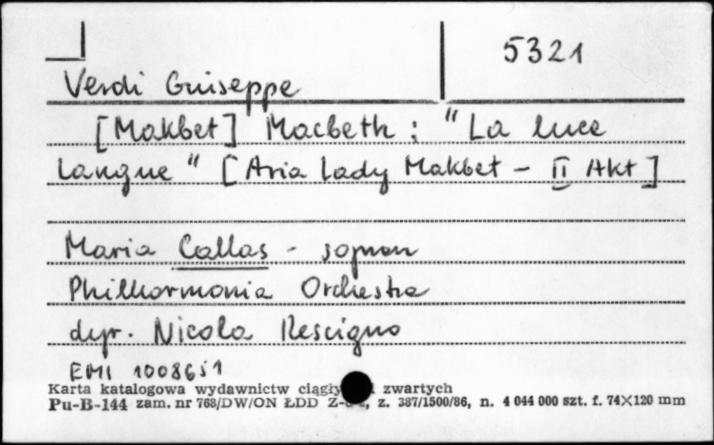 5321
Verdi Guiseppe
[Makbet] Macbeth : "La luce
langue" [Aria Lady Makbet - II Akt]
Maria Callas - sopran
Philharmonia Orchestra
dyr. Nicola Rescigno
EMI 1008651
Karta katalogowa wydawnictw zwartych
Pu-B-144 zam. nr 768/DW/ON ŁDD z. 387/1500/86, n. 4 044 000 szt. f. 74×120 mm